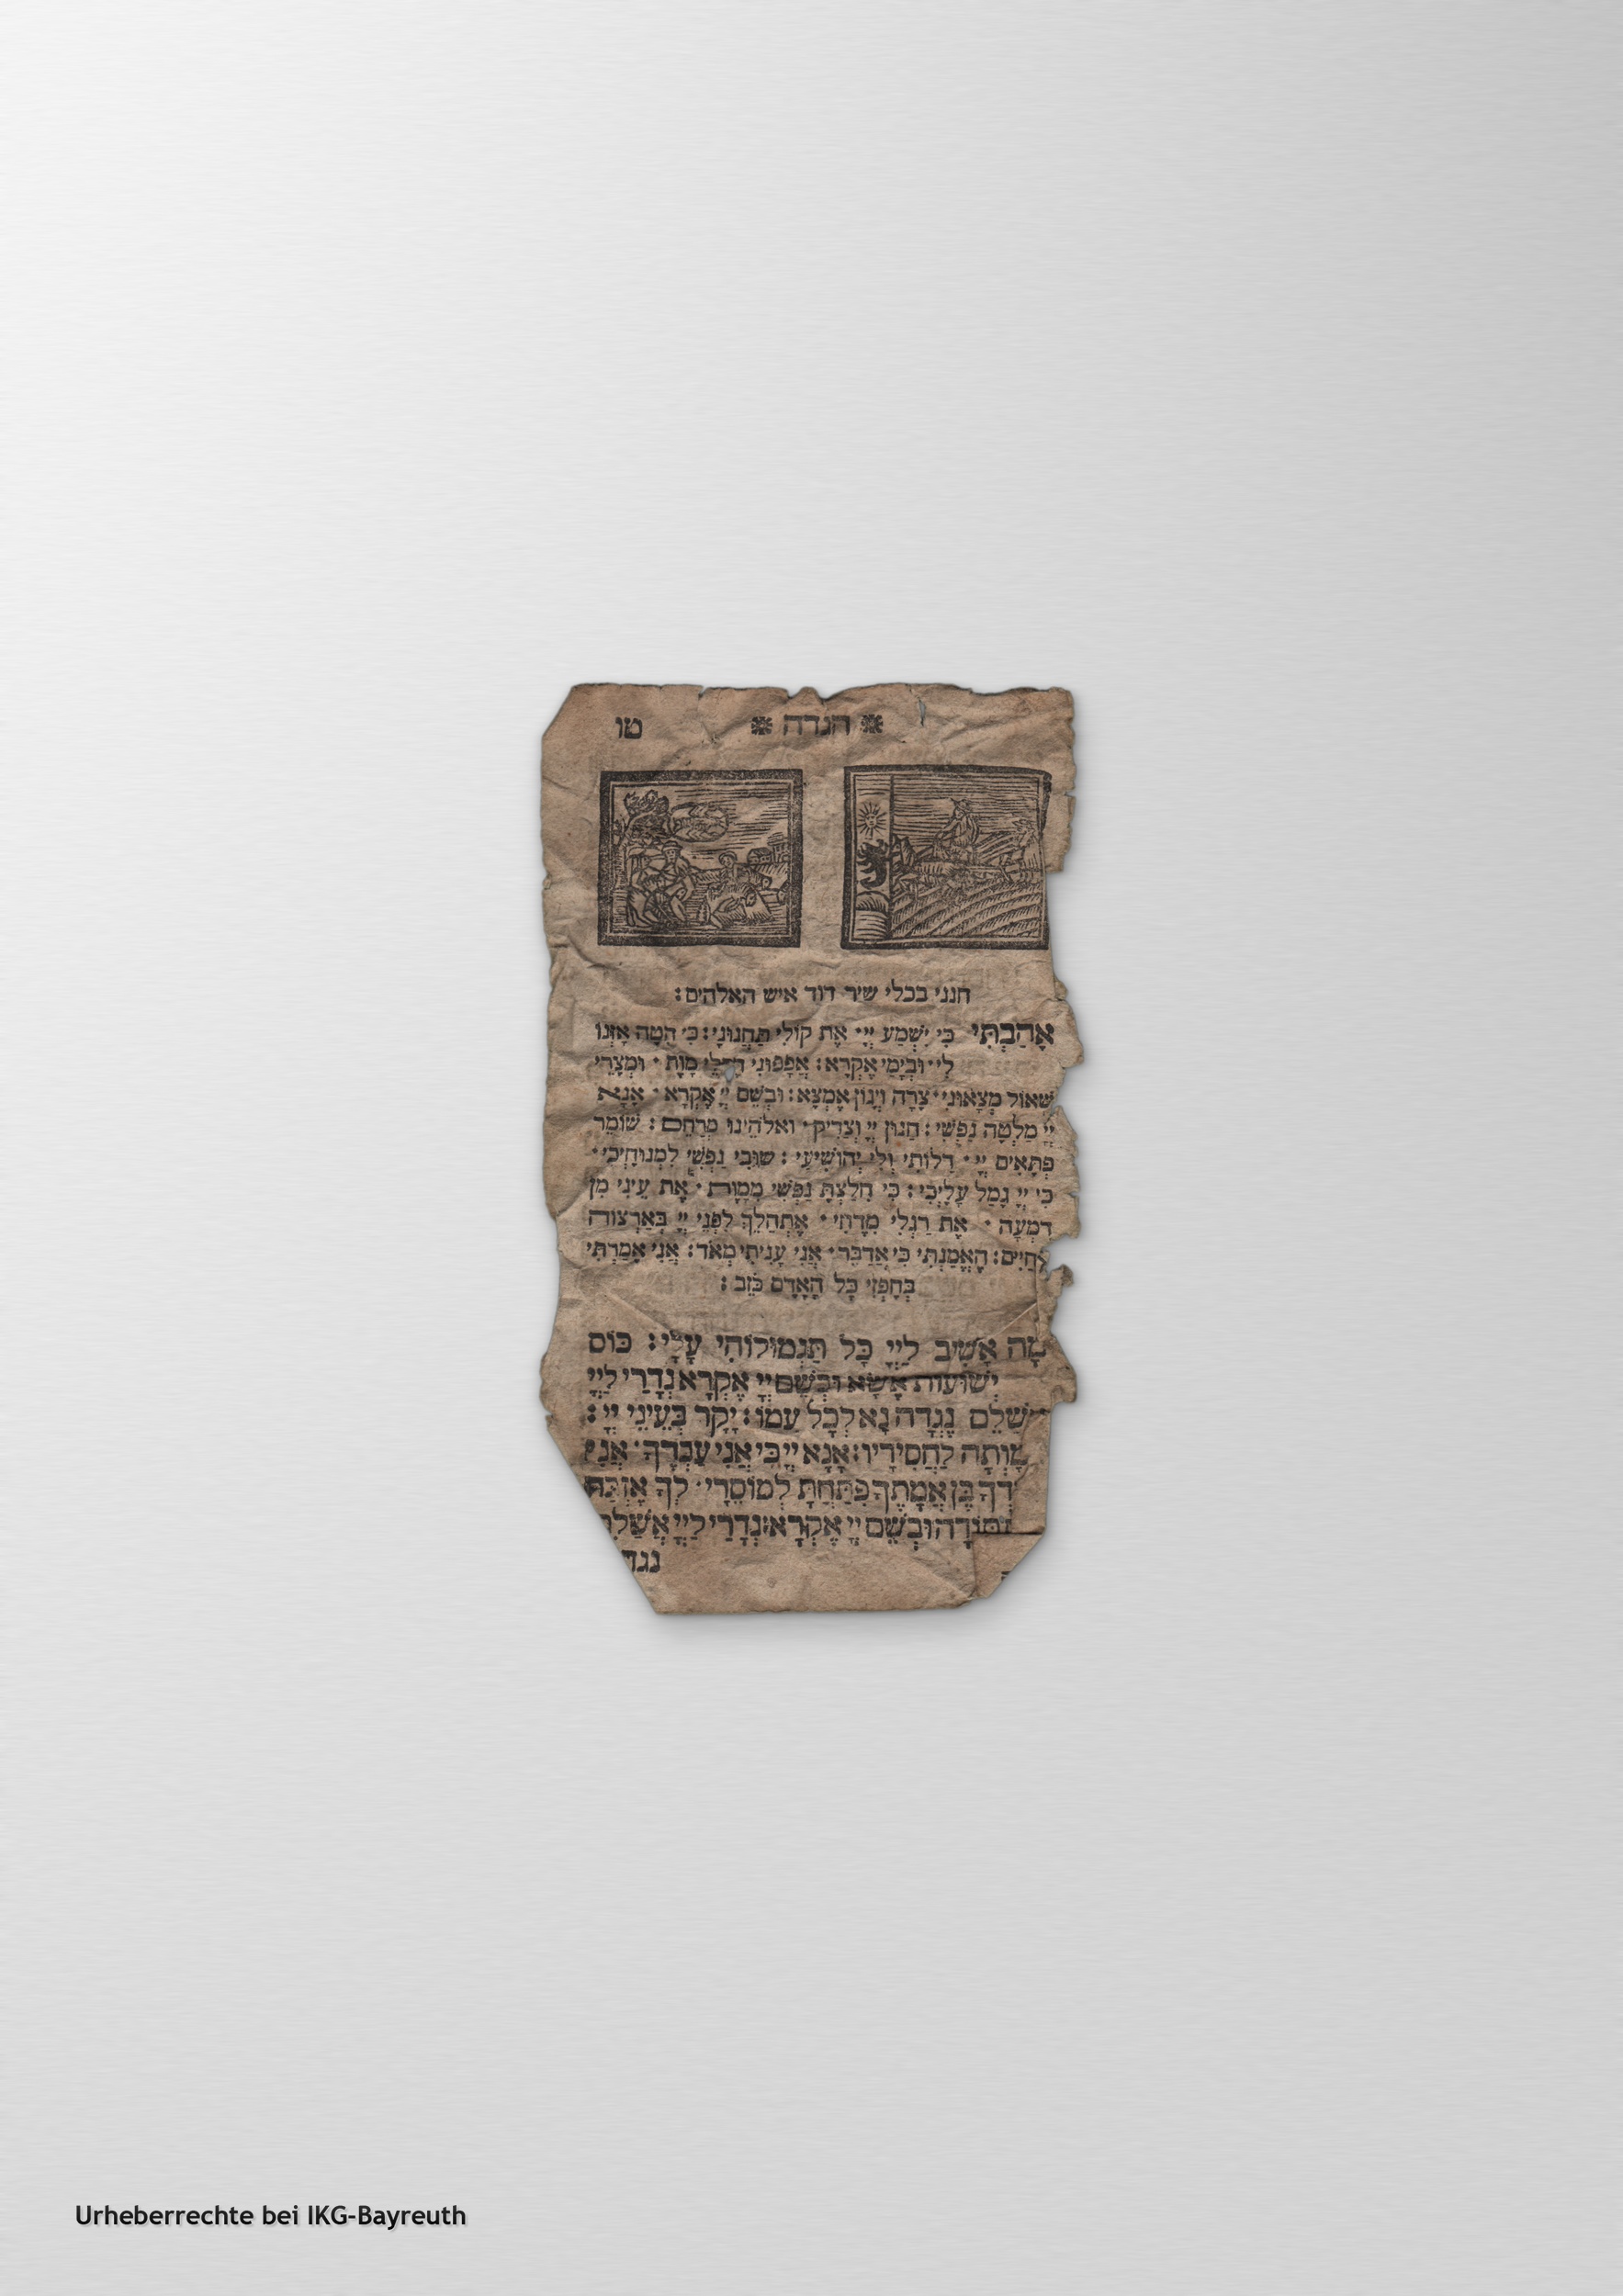 ❋ הגדה ❋ טו
חנני בכלי שיר דוד איש האלהים:
אָהַבְתִּי כִּי יִשְׁמַע יְיָ אֶת קוֹלִי תַּחֲנוּנָי: כִּי הִטָּה אָזְנוֹ
לִי וּבְיָמַי אֶקְרָא: אֲפָפוּנִי חֶבְלֵי מָוֶת · וּמְצָרֵי
שְׁאוֹל מְצָאוּנִי צָרָה וְיָגוֹן אֶמְצָא: וּבְשֵׁם יְיָ אֶקְרָא · אָנָּא
יְיָ מַלְּטָה נַפְשִׁי: חַנּוּן יְיָ וְצַדִּיק · ואלֹהֵינוּ מְרַחֵם: שׁוֹמֵר
פְּתָאִים יְיָ · דַּלּוֹתִי וְלִי יְהוֹשִׁיעַ: שׁוּבִי נַפְשִׁי לִמְנוּחָיְכִי ·
כִּי יְיָ גָּמַל עָלָיְכִי: כִּי חִלַּצְתָּ נַפְשִׁי מִמָּוֶת · אֶת עֵינִי מִן
דִּמְעָה · אֶת רַגְלִי מִדֶּחִי · אֶתְהַלֵּךְ לִפְנֵי יְיָ בְּאַרְצוֹת
חַיִּים: הֶאֱמַנְתִּי כִּי אֲדַבֵּר · אֲנִי עָנִיתִי מְאֹד: אֲנִי אָמַרְתִּי
בְּחָפְזִי כָּל הָאָדָם כֹּזֵב:
מָה אָשִׁיב לַיְיָ כָּל תַּגְמוּלוֹהִי עָלָי: כּוֹס
יְשׁוּעוֹת אֶשָּׂא וּבְשֵׁם יְיָ אֶקְרָא נְדָרַי לַיְיָ
שַׁלֵּם נֶגְדָה נָּא לְכָל עַמּוֹ: יָקָר בְּעֵינֵי יְיָ:
מָּוְתָה לַחֲסִידָיו: אָנָּא יְיָ כִּי אֲנִי עַבְדֶּךָ · אֲנִי
דְּךָ בֶּן אֲמָתֶךָ פִּתַּחְתָּ לְמוֹסֵרָי · לְךָ אֶזְבַּח
תּוֹדָה וּבְשֵׁם יְיָ אֶקְרָא: נְדָרַי לַיְיָ אֲשַׁלֵּם
נגד
Urheberrechte bei IKG-Bayreuth